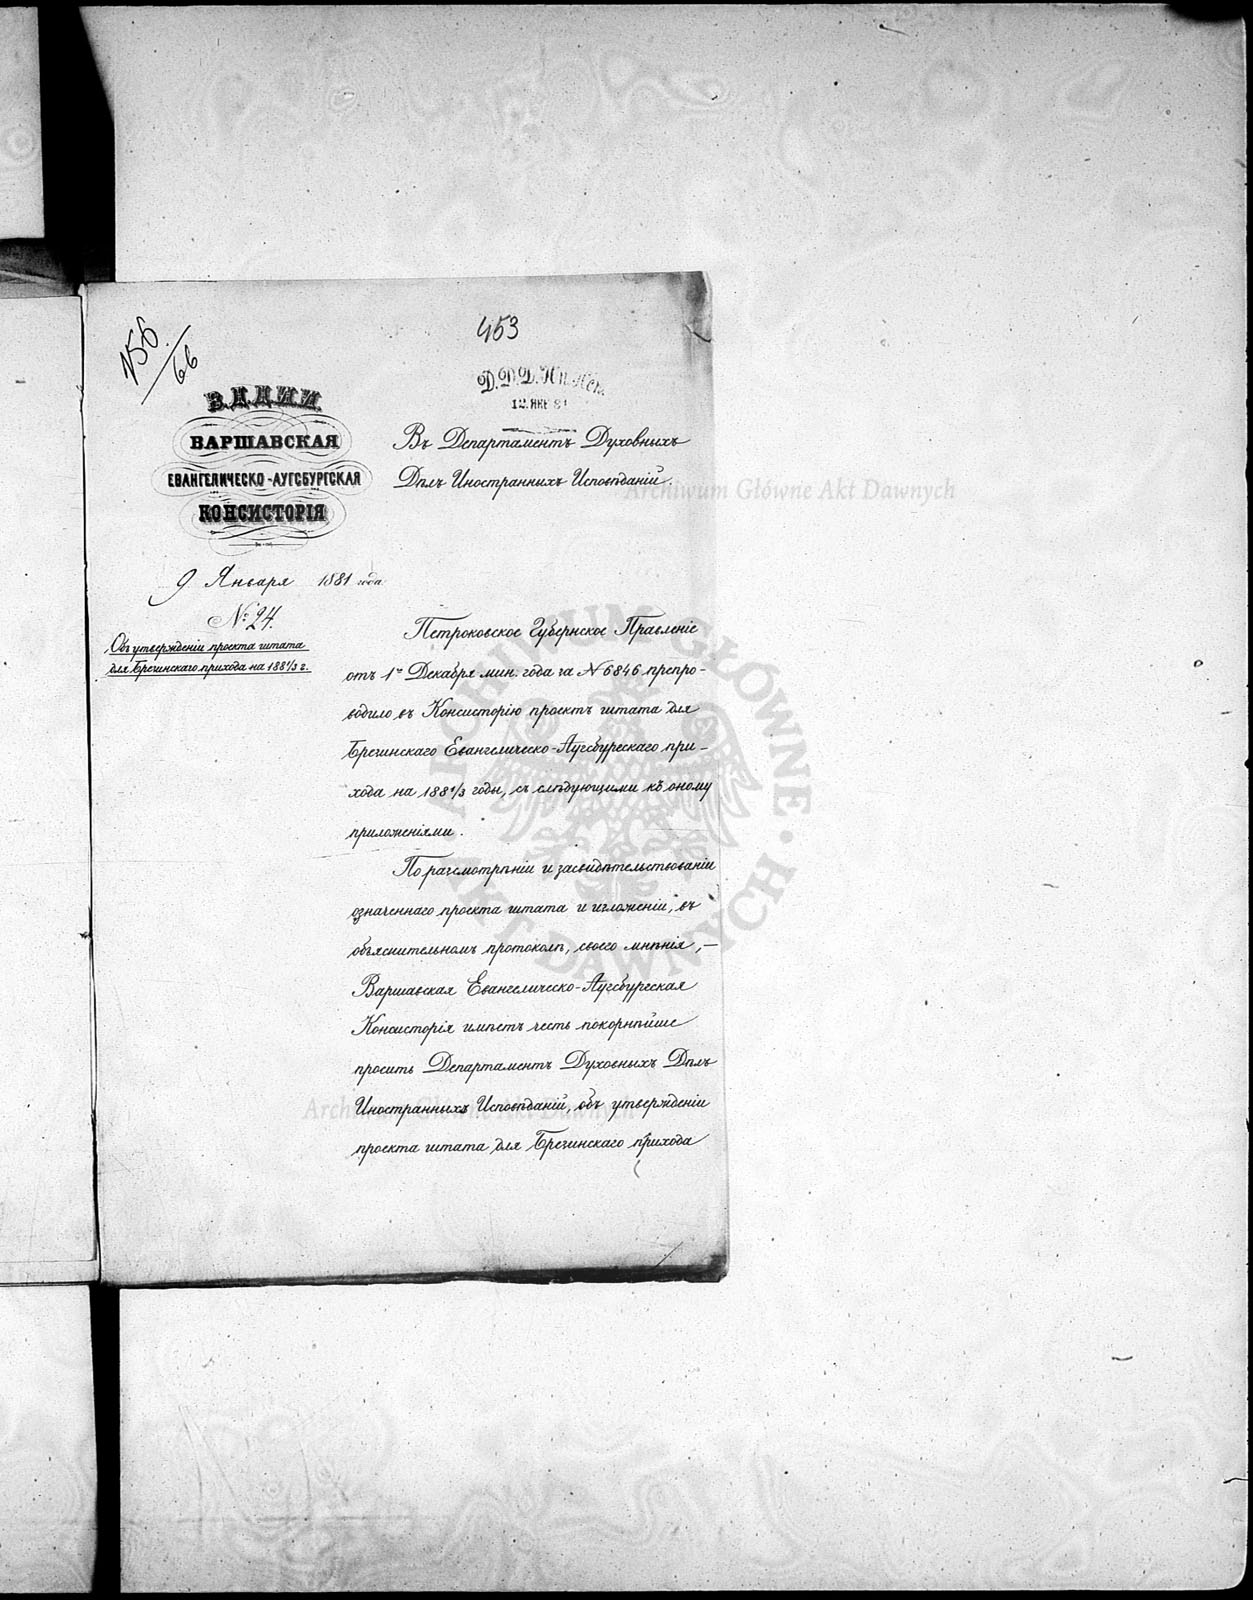 №56/66
453
Д.Д.Д. Ин. Исп.
12. ЯНВ 81
В.Д.Д.И.И.
ВАРШАВСКАЯ
ЕВАНГЕЛИЧЕСКО-АУГСБУРГСКАЯ
КОНСИСТОРІЯ
9 Января 1881 года
№ 24.
Объ утвержденіи проекта штата
для Брезинскаго прихода на 1881/3 г.
Въ Департаментъ Духовныхъ
Дѣлъ Иностранныхъ Исповѣданій.
Петроковское Губернское Правленіе
отъ 1го Декабря мин. года за № 6846 препро-
водило въ Консисторію проектъ штата для
Брезинскаго Евангелическо-Аугсбургскаго при-
хода на 1881/3 годы, съ слѣдующими къ оному
приложеніями.
По разсмотрѣніи и засвидѣтельствованіи
означеннаго проекта штата и изложеніи, въ
объяснительномъ протоколѣ, своего мнѣнія, —
Варшавская Евангелическо-Аугсбургская
Консисторія имѣетъ честь покорнѣйше
просить Департаментъ Духовныхъ Дѣлъ
Иностранныхъ Исповѣданій, объ утвержденіи
проекта штата для Брезинскаго прихода
Archiwum Główne Akt Dawnych
ARCHIWUM GŁÓWNE AKT DAWNYCH
Archiwum Główne Akt Dawnych